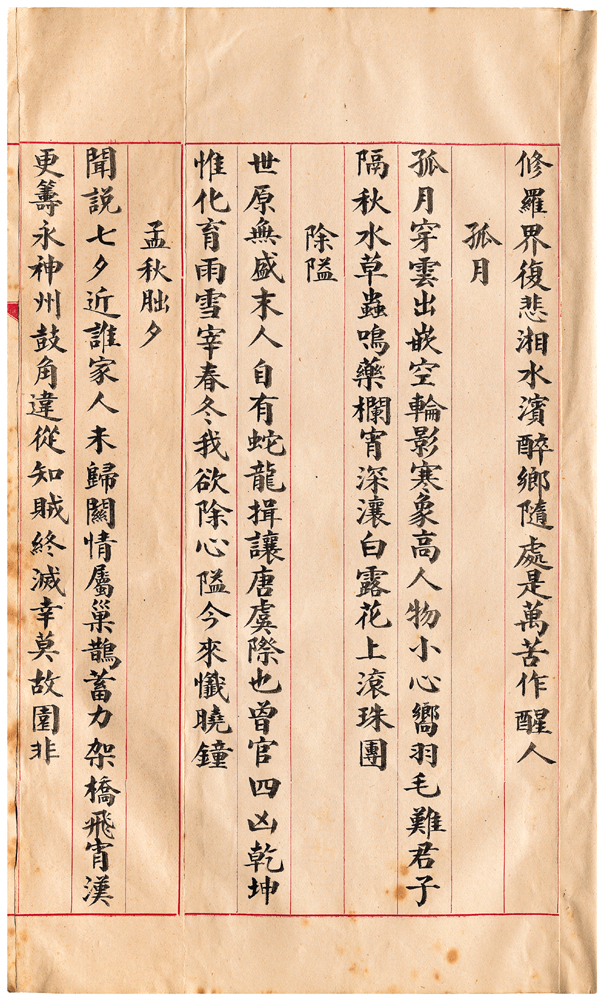 修羅界復悲湘水濱醉鄉隨處是萬苦作醒人
孤月
孤月穿雲出嵌空輪影寒象高人物小心嚮羽毛難君子
隔秋水草蟲鳴藥欄宵深瀼白露花上滾珠團
除隘
世原無盛末人自有蛇龍揖讓唐虞際也曾官四凶乾坤
惟化育雨雪宰春冬我欲除心隘今來懺曉鐘
孟秋朏夕
聞說七夕近誰家人未歸關情屬巢鵲蓄力架橋飛宵漢
更籌永神州鼓角違從知賊終滅幸莫故園非